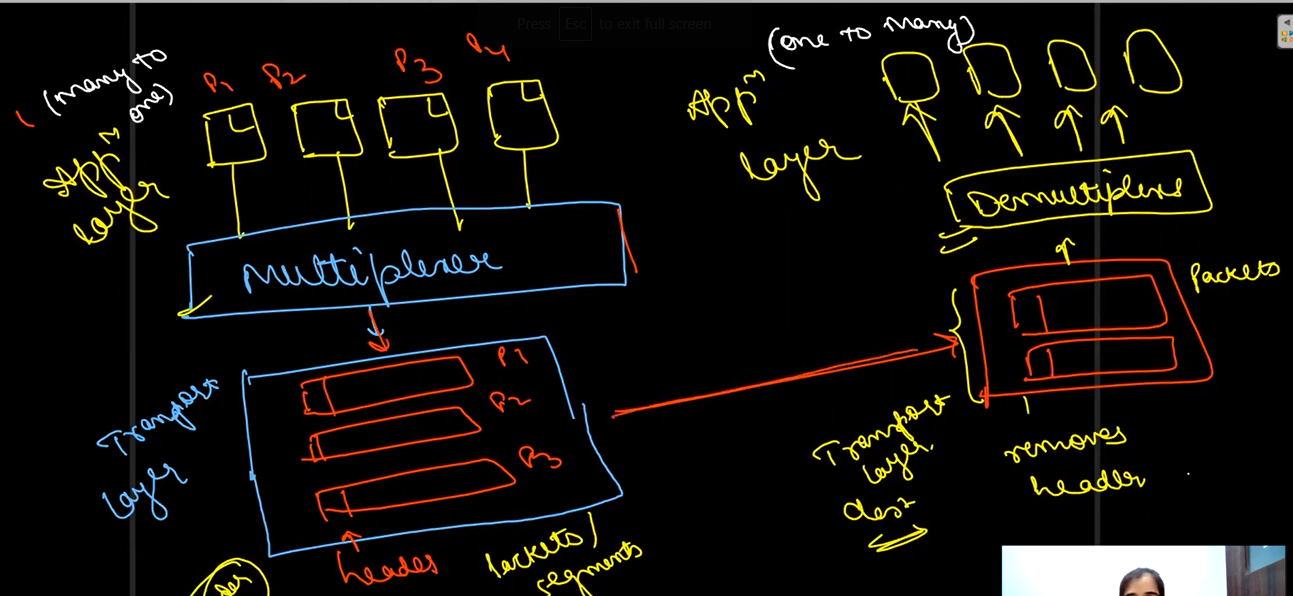 Press Esc to exit full screen
(many to
one)
P1 P2 P3 P4
Appn
layer
multiplexer
Transport
layer
P1
P2
P3
header
Packets/
segments
(one to many)
Appn
layer
Demultiplexer
Packets
Transport
layer
removes
header